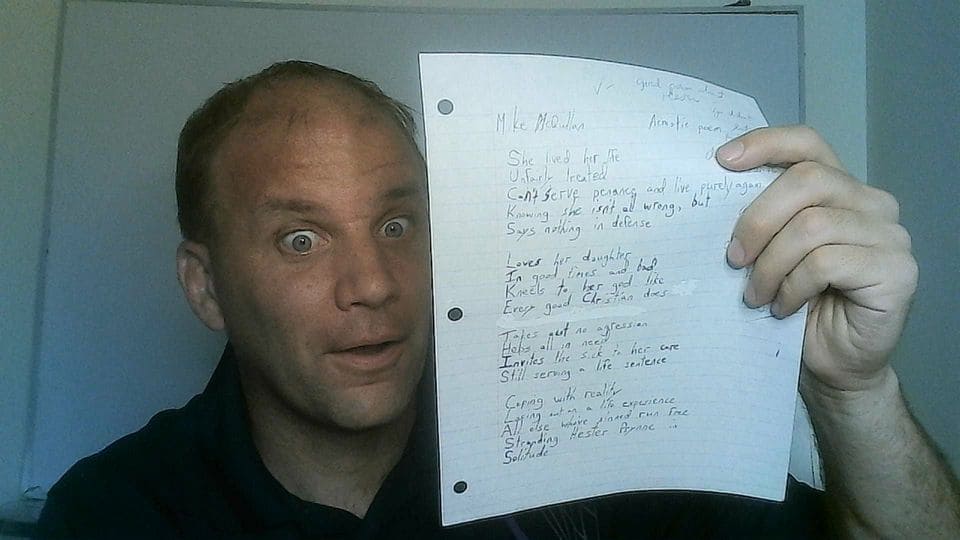 Good poem about
Mike McQuillan
Acrostic poem
She lived her life
Unfairly treated
Can't serve penance and live purely again
Knowing she isn't all wrong, but
Says nothing in defense
Loves her daughter
In good times and bad
Kneels to her god like
Every good Christian does
Takes out no agression
Helps all in need
Invites the sick to her care
Still serving a life sentence
Coping with reality
Losing out on a life experience
All else where sinned run free
Stranding Hester Prynne in
Solitude